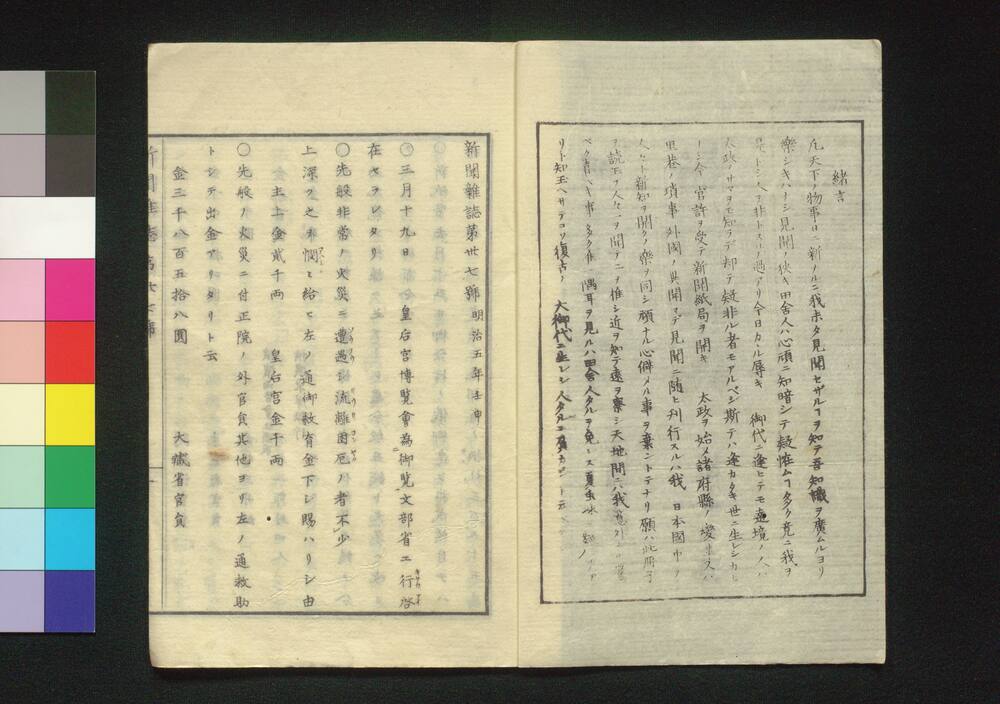 緒言
凡天下ノ物事日ニ新ノルニ我未タ見聞セザルヿヲ知テ吾知識ヲ廣ムルヨリ
樂シキハナシ見聞ノ狹キ田舍人ハ心頑ニ知暗シテ疑惟ムヿ多ク竟ニ我ヲ
是トシ人ヲ非トスルノ過アリ今日カヽル辱キ 御代ニ逢ヒテモ遠境ノ人ハ
太政ノサマヲモ知ラデ却テ疑非ル者モアルベシ斯テハ逢カタキ世ニ生レシカヒ
ナシ今 官許ヲ受テ新聞紙局ヲ開キ 太政ヲ始メ諸府縣ノ變革又ハ
里巷ノ瑣事外國ノ異聞マデ見聞ニ隨ヒ刊行スルハ我 日本國中ノ
人々ト新知ヲ開クノ樂ヲ同シ頑ナル心僻メル事ヲ棄ントテナリ願ハ此冊子
ヲ讀玉フ人々一ヲ聞テ二ヲ推シ近ヲ知テ遠ヲ察シ天地間ニハ我意外ノ
ベク喜ベキ事多ク 隅耳ヲ見ルハ田舍人タルヲ免レス夏虫氷
リト知玉ヘサテコソ復古ノ 大御代ニ生レシ人タルニ負カズト云
新聞雜誌第丗七號 明治五年壬申
〇三月十九日 皇后宮博覽會為御覽文部省エ行啓
在セラレタリ
〇先般非常ノ火災ニ遭遇シ流離困厄ノ者不少
上深ク之ヲ憫ミ給ヒ左ノ通御救育金下シ賜ハリシ由
主上金貳千両 皇后宮金千両
〇先般ノ火災ニ付正院ノ外官員其他ヨリ左ノ通救助
トシテ出金アリタリト云
金三千八百五拾八圓 大藏省官員